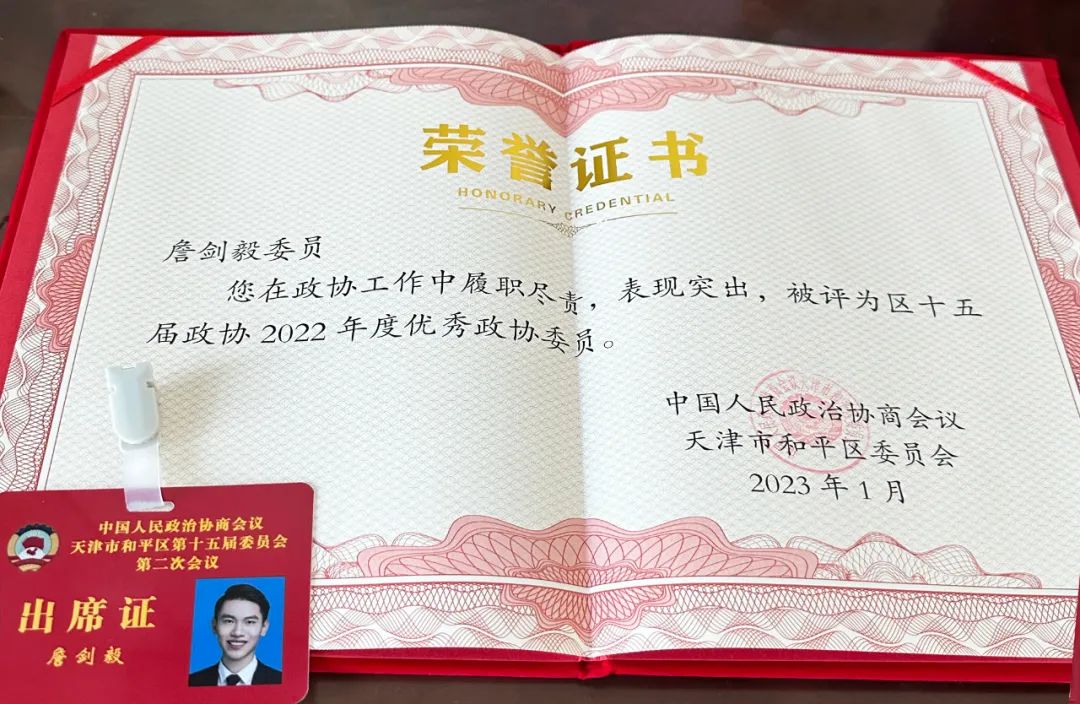 荣誉证书
HONORARY CREDENTIAL
詹剑毅委员
您在政协工作中履职尽责，表现突出，被评为区十五
届政协2022年度优秀政协委员。
中国人民政治协商会议
天津市和平区委员会
2023年1月
中国人民政治协商会议
天津市和平区第十五届委员会
第二次会议
出席证
詹剑毅